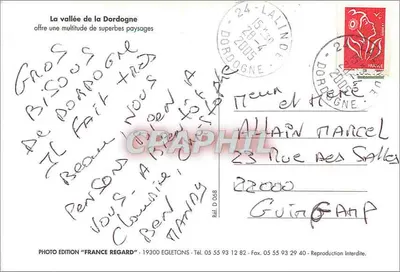 La vallée de la Dordogne
offre une multitude de superbes paysages
24 - LALINDE
15 H
28-4
2005
DORDOGNE
GROS
BISOUS
DE DORDOGNE
IL FAIT TRES
BEAU, NOUS
PENSONS BEN A
VOUS - A BIENTOT
CHRISTOPHE
BEN
MANDY
GRAPHIL
Réf. D 068
Meur et Meme
ALLAIN MARCEL
23 RUE DES SALLES
22000
GUINGAMP
PHOTO EDITION "FRANCE REGARD" - 19300 EGLETONS - Tél. 05 55 93 12 82 - Fax. 05 55 93 29 40 - Reproduction Interdite.